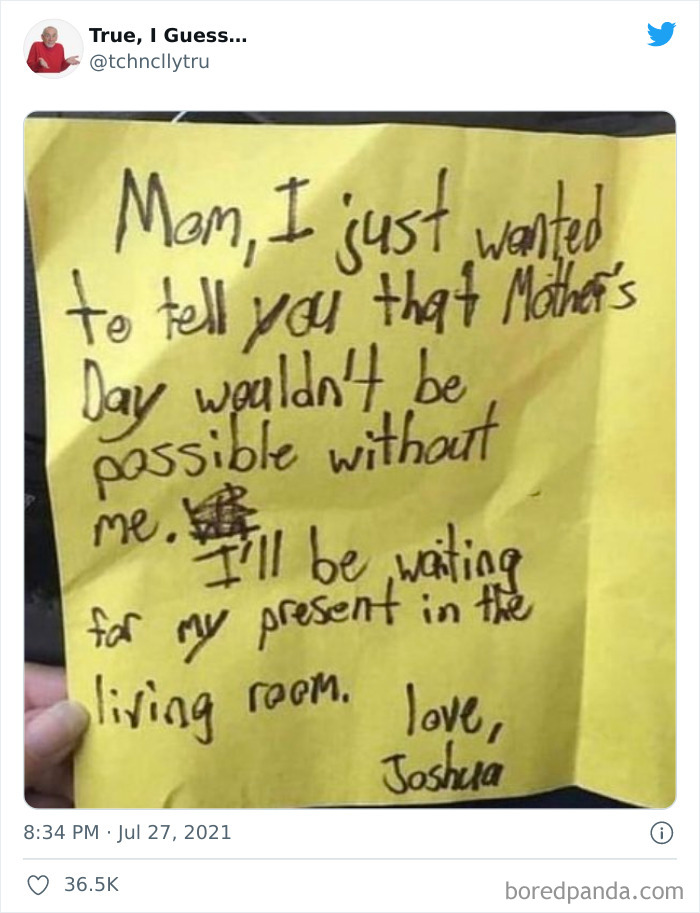 True, I Guess...
@tchncllytru
Mom, I just wanted
to tell you that Mother's
Day wouldn't be
possible without
me.
I'll be waiting
for my present in the
living room.
love,
Joshua
8:34 PM · Jul 27, 2021
36.5K
boredpanda.com